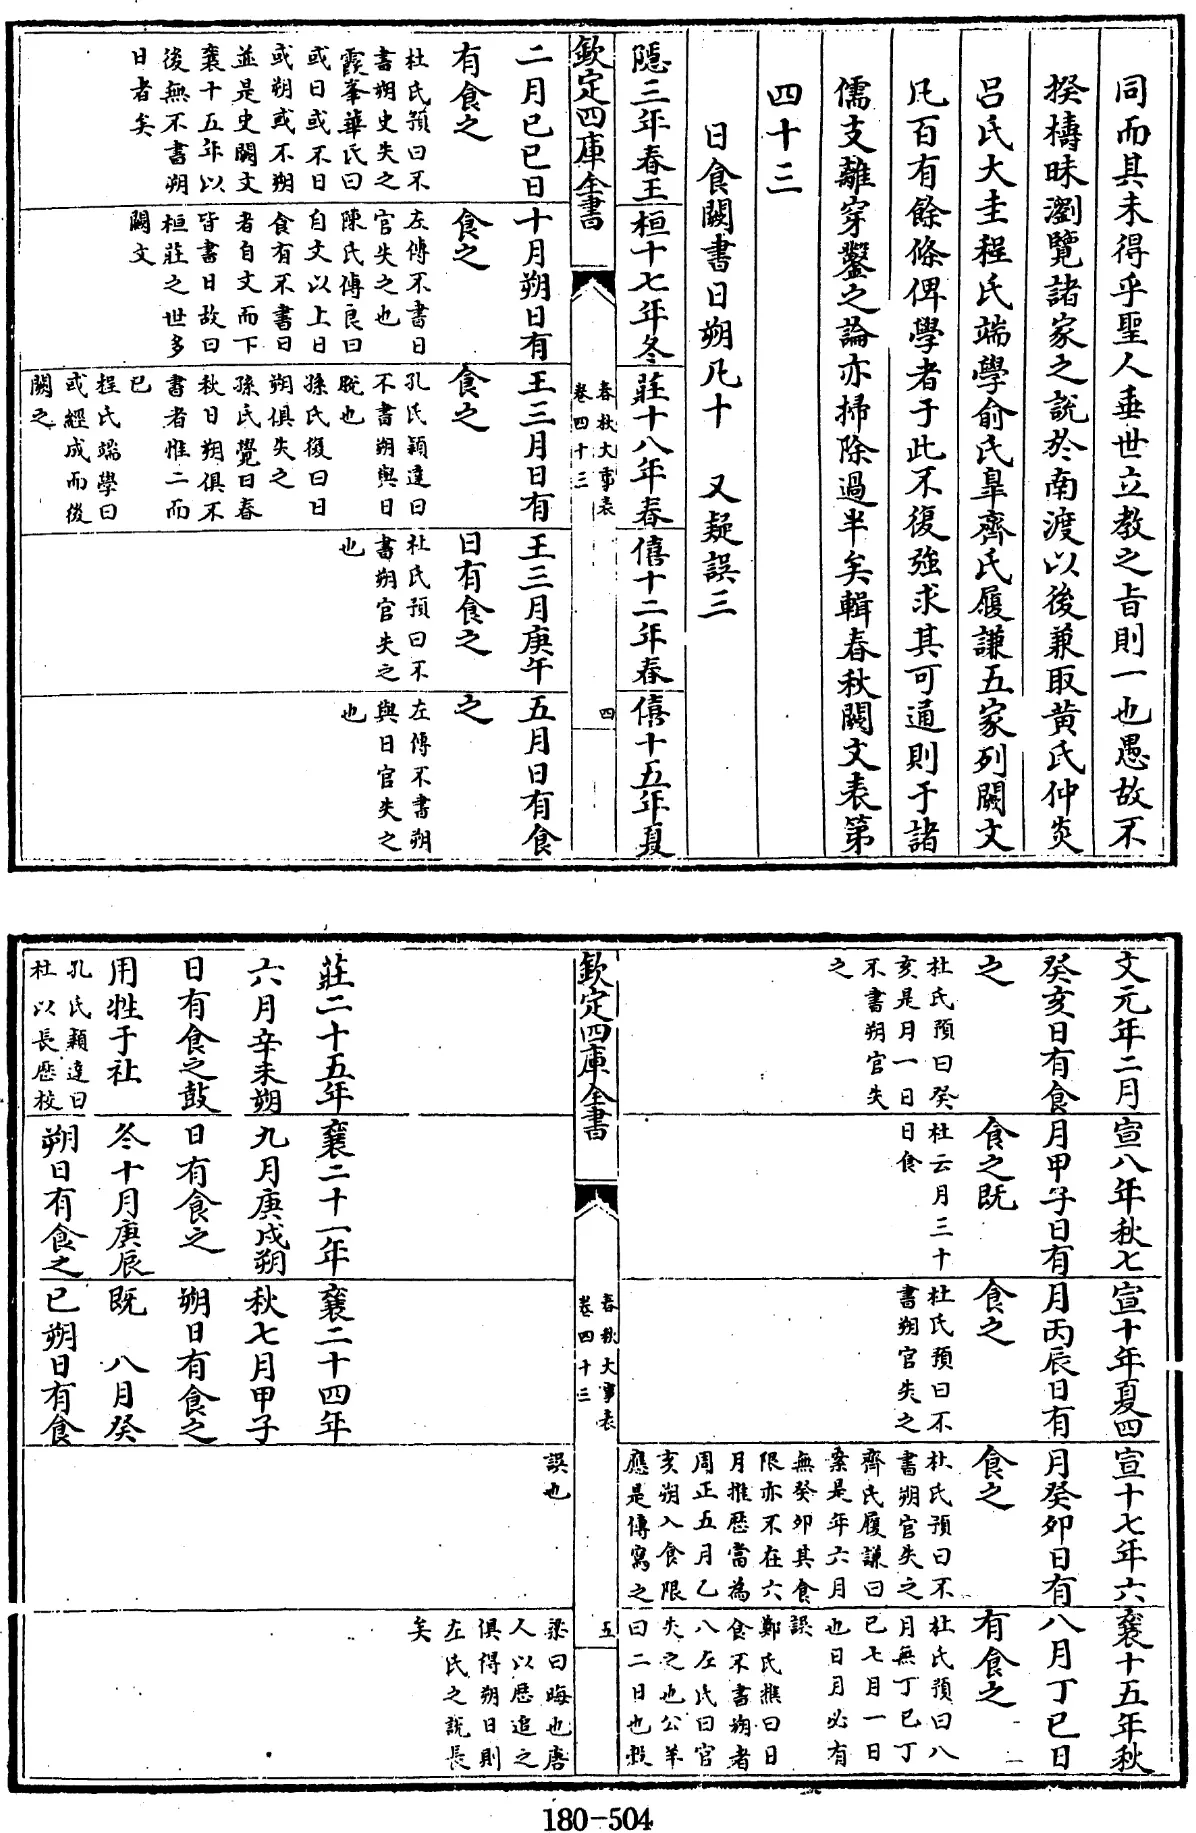 同而其未得乎聖人垂世立教之旨則一也愚故不
揆檮昧瀏覽諸家之説於南渡以後兼取黄氏仲炎
呂氏大圭程氏端學俞氏臯齊氏履謙五家列闕文
凡百有餘條俾學者于此不復強求其可通則于諸
儒支離穿鑿之論亦掃除過半矣輯春秋闕文表第
四十三
日食闕書日朔凡十　又疑誤三
隱三年春王
二月己巳日
有食之
杜氏預曰不
書朔史失之
霞峯華氏曰
或日或不日
或朔或不朔
並是史闕文
襄十五年以
後無不書朔
日者矣
桓十七年冬
十月朔日有
食之
左傳不書日
官失之也
陳氏傅良曰
自文以上日
食有不書日
者自文而下
皆書日故曰
桓莊之世多
闕文
莊十八年春
王三月日有
食之
孔氏穎達曰
不書朔與日
脱也
孫氏復曰日
朔俱失之
孫氏覺曰春
秋日朔俱不
書者惟二而
已
程氏端學曰
或經成而後
闕之
僖十二年春
王三月庚午
日有食之
杜氏預曰不
書朔官失之
也
僖十五年夏
五月日有食
之
左傳不書朔
與日官失之
也
欽定四庫全書
春秋大事表
卷四十三
四
文元年二月
癸亥日有食
之
杜氏預曰癸
亥是月一日
不書朔官失
之
宣八年秋七
月甲子日有
食之既
杜云月三十
日食
宣十年夏四
月丙辰日有
食之
杜氏預曰不
書朔官失之
宣十七年六
月癸卯日有
食之
杜氏預曰不
書朔官失之
齊氏履謙曰
案是年六月
無癸卯其食
限亦不在六
月推歴當為
周正五月乙
亥朔入食限
應是傳寫之
誤也
襄十五年秋
八月丁巳日
有食之
杜氏預曰八
月無丁巳丁
巳七月一日
也日月必有
誤
鄭氏樵曰日
食不書朔者
八左氏曰官
失之也公羊
曰二日也榖
梁曰晦也唐
人以歴追之
俱得朔日則
左氏之説長
矣
欽定四庫全書
春秋大事表
卷四十三
五
莊二十五年
六月辛未朔
日有食之鼓
用牲于社
孔氏穎達曰
杜以長歴校
襄二十一年
九月庚戌朔
日有食之
冬十月庚辰
朔日有食之
襄二十四年
秋七月甲子
朔日有食之
既　八月癸
巳朔日有食
180-504